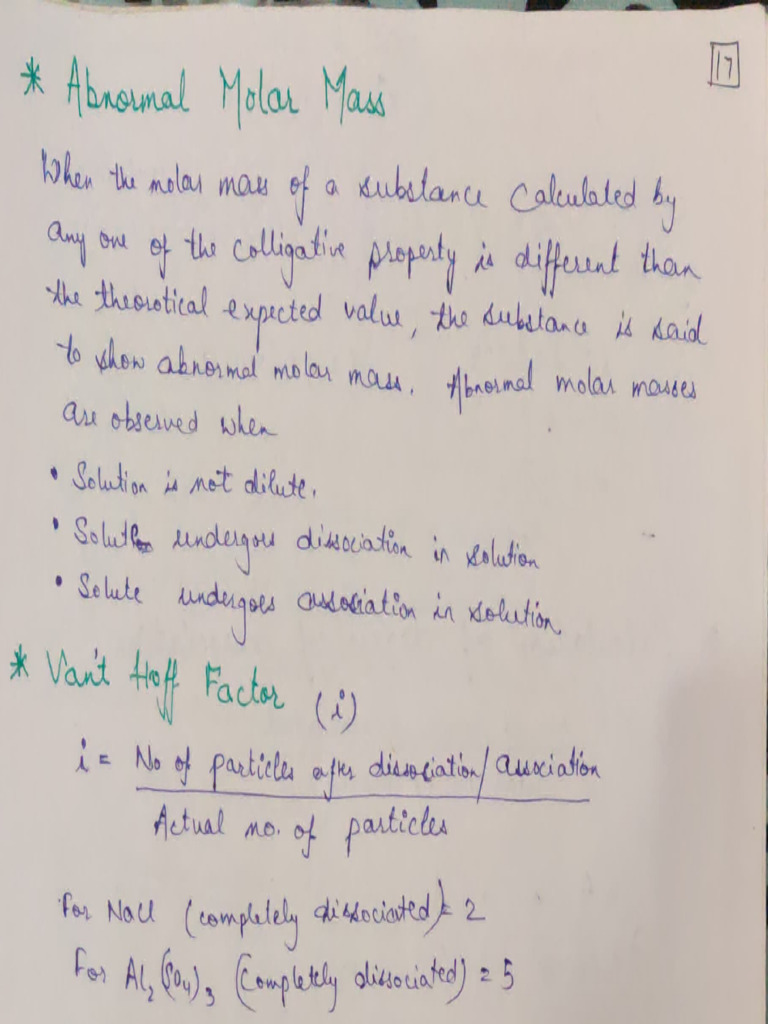 17
* Abnormal Molar Mass
When the molar mass of a substance calculated by
any one of the colligative property is different than
the theorotical expected value, the substance is said
to show abnormal molar mass. Abnormal molar masses
are observed when
• Solution is not dilute.
• Solute undergoes dissociation in solution
• Solute undergoes association in solution.
* Van't Hoff Factor (i)
i = No of particles after dissociation/association
Actual no. of particles
For NaCl (completely dissociated) = 2
For Al₂(SO₄)₃ (completely dissociated) = 5